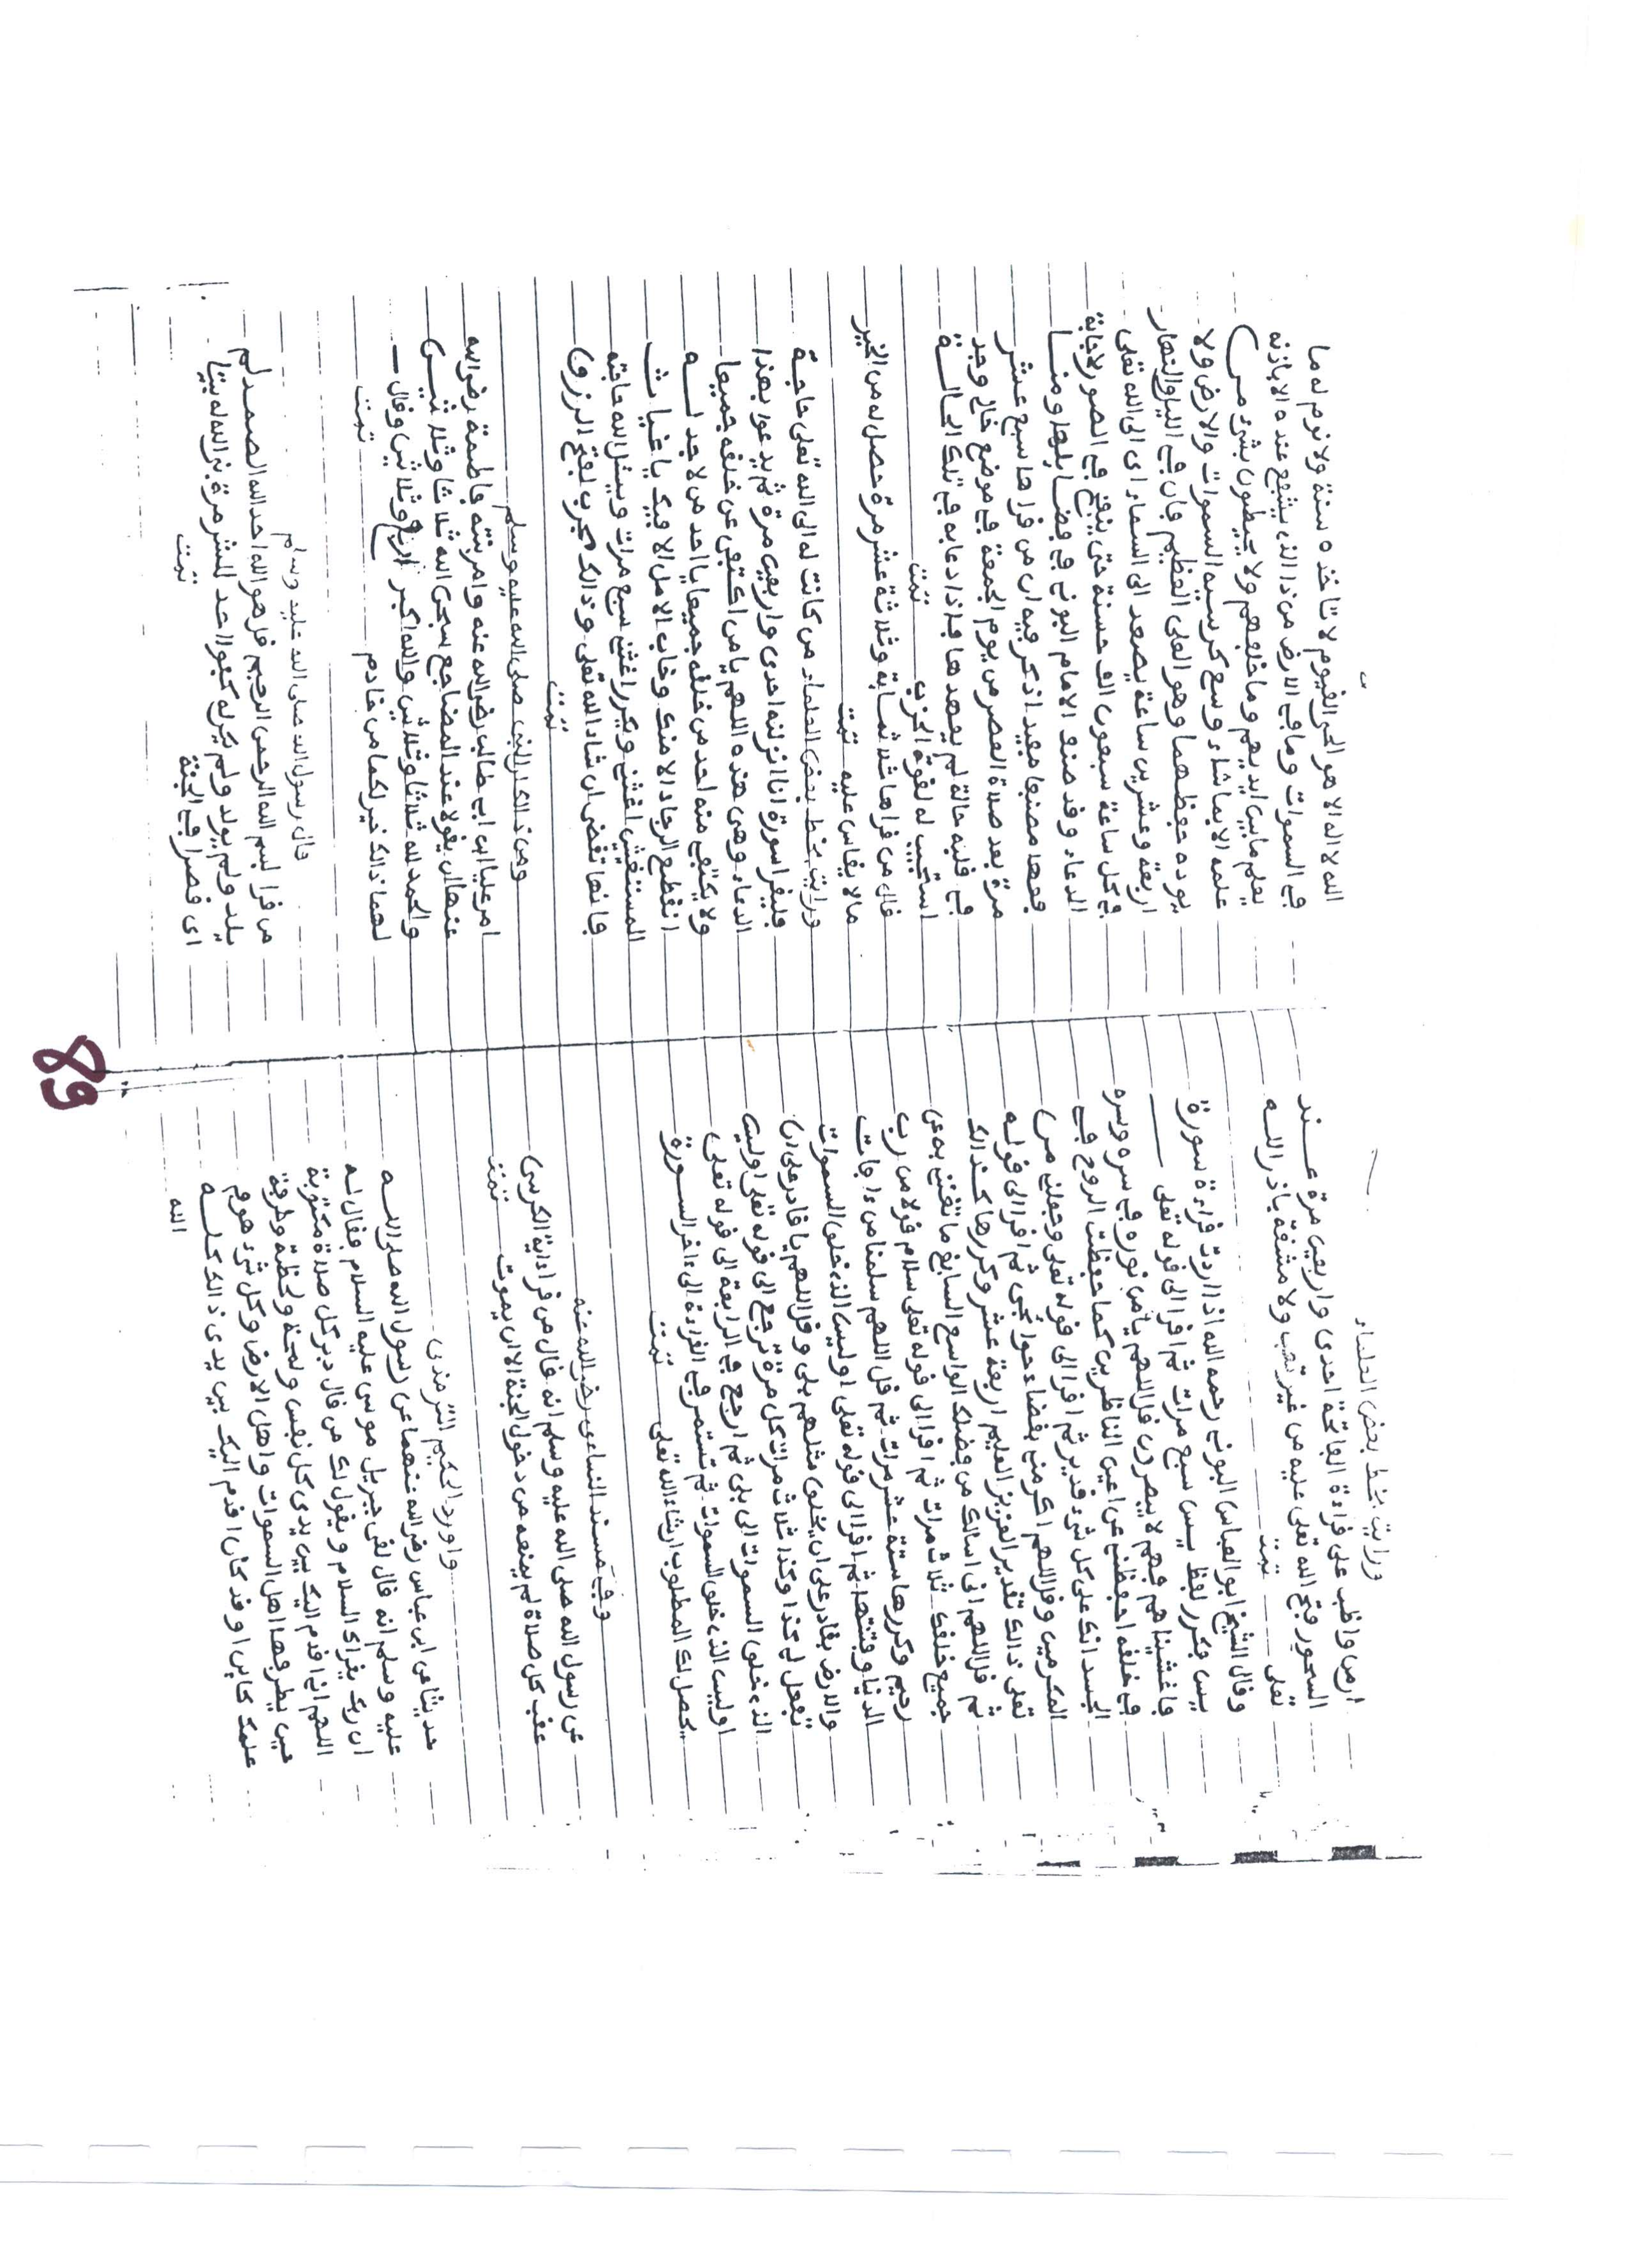 ورايت بخط بعض العلماء
ان من واظب على قراءة الفاتحة احدى واربعين مرة عند
السحور فتح الله تعلى عليه من غير تعب ولا مشقة باذن الله
تعلى تمت
وقال الشيخ ابو العباس البوني رحمه الله اذا اردت قراءة سورة
يس فكرر لفظ يس سبع مرات ثم اقرا الى قوله تعلى
فاغشيناهم فهم لا يبصرون قل اللهم يا من نوره في سره وسره
في خلقه احفظني عن اعين الناظرين كما حفظت الروح في
الجسد انك على كل شيء قدير ثم اقرا الى قوله تعلى وجعلني من
المكرمين وقل اللهم اكرمني بقضاء حوائجي ثم اقرا الى قوله
تعلى ذالك تقدير العزيز العليم اربعة عشر وكررها كذالك
ثم قل اللهم اني اسالك من فضلك الواسع السابغ ما تغنني به عن
جميع خلقك ثلاث مرات ثم اقرا الى قوله تعلى سلام قولا من رب
رحيم وكررها ستة عشر مرات ثم قل اللهم سلمنا من ءافات
الدنيا وفتنتها ثم اقرا الى قوله تعلى اوليس الذي خلق السموات
والارض بقادر على ان يخلق مثلهم بلى وقل اللهم يا قادر على ان
تفعل لي كذا وكذا ثلاث مرات كل مرة ترجع الى قوله تعلى اوليس
الذي خلق السموات الى بلى ثم ارجع في الرابعة الى قوله تعلى
اوليس الذي خلق السموات ثم تستمر في القراءة الى ءاخر السورة
يحصل لك المطلوب ان شاء الله تعلى تمت
وفي مسند النساءى رضي الله عنه
عن رسول الله صلى الله عليه وسلم انه قال من قرا ءاية الكرسى
عقب كل صلاة لم يمنعه من دخول الجنة الا ان يموت تمت
واورد الحكيم الترمذى
حديثا عن ابن عباس رضي الله عنهما عن رسول الله صلى الله
عليه وسلم انه قال لقي جبريل موسى عليه السلام فقال له
ان ربك يقراك السلام ويقول لك من قال دبر كل صلاة مكتوبة
اللهم اني اقدم اليك بين يدى كل نفس ولمحة ولحظة وطرفة
حين يطرفها اهل السموات واهل الارض وكل شيء هو في
علمك كاين او قد كان اقدم اليك بين يدى ذالك كله
الله
الله لا اله الا هو الحي القيوم لا تاخذه سنة ولا نوم له ما
في السموات وما في الارض من ذا الذي يشفع عنده الا باذنه
يعلم ما بين ايديهم وما خلفهم ولا يحيطون بشيء من
علمه الا بما شاء وسع كرسيه السموات والارض ولا
يوده حفظهما وهو العلي العظيم فان في الليل والنهار
اربعة وعشرين ساعة يصعد الى السماء الى الله تعلى
في كل ساعة سبعون الف حسنة حتى ينفخ في الصور لاجابة
الدعاء وقد صنع الامام البوني في فضايلها ومنا
فعها مصنفا مفيدا ذكر فيه ان من قراها سبع عشر
مرة بعد صلاة العصر من يوم الجمعة في موضع خال وجد
في قلبه حالة لم يعهدها فاذا دعا به في تلك الحالة
استجيب له لقوة الحزب تمت
قال من قراها ثلاثماية وثلاثة عشر مرة حصل له من الخير
ما لا يقاس عليه تمت
ورايت بخط بعض العلماء من كانت له الى الله تعلى حاجة
فليقرا سورة انا انزلنه احدى واربعين مرة ثم يدعوا بهذا
الدعاء وهى هذه اللهم يا من اكتفى عن خلقه جميعا
ولا يكتفي منه احد من خلقه جميعا يا احد من لا احد له
انقطع الرجاء الا منك وخاب الامل الا فيك يا غياث
المستغثين اغثني ويكرر اغثني سبع مرات ويسئل الله حاجته
فانها تقضى ان شاء الله تعلى وذالك مجرب لفتح الرزق
تمت
ومن ذالك ان النبى صلى الله عليه وسلم
امر عليا ابن ابى طالب رضي الله عنه وامر بنته فاطمة رضي الله
عنها ان يقولا عند المضاجع سبحن الله ثلاثا وثلاثيى
والحمد لله ثلاثا وثلاثين والله اكبر اربع وثلاثين وقال
لهما ذالك خير لكما من خادم تمت
قال رسول الله صلى الله عليه وسلم
من قرا بسم الله الرحمن الرحيم قل هو الله احد الله الصمد لم
يلد ولم يولد ولم يكن له كفوا احد عشر مرة بنى الله له بيتا
اى قصرا في الجنة تمت
89